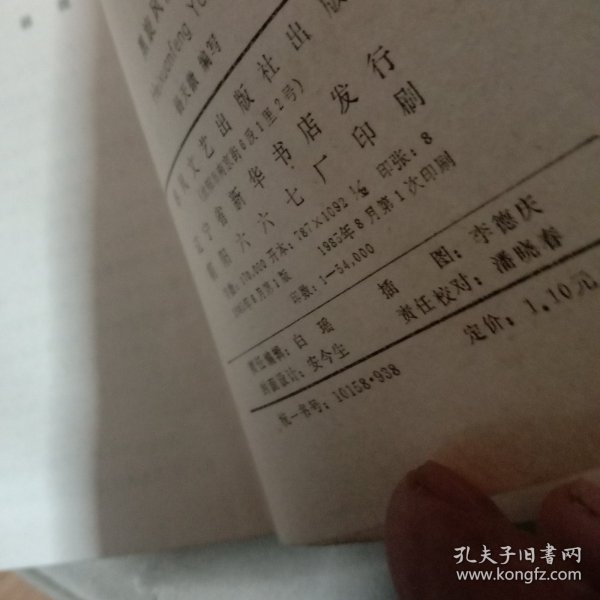 黑旋风
编写
春风文艺出版社出版
辽宁省新华书店发行
六六七厂印刷
字数:170,000 开本:787×1092 1/32 印张:8
1985年8月第1版 1985年8月第1次印刷
印数:1—54,000
责任编辑:白瑶 插图:李德庆
封面设计:安今生 责任校对:潘晓春
统一书号:10158·938 定价:1.10元
孔夫子旧書网
www.kongfz.com